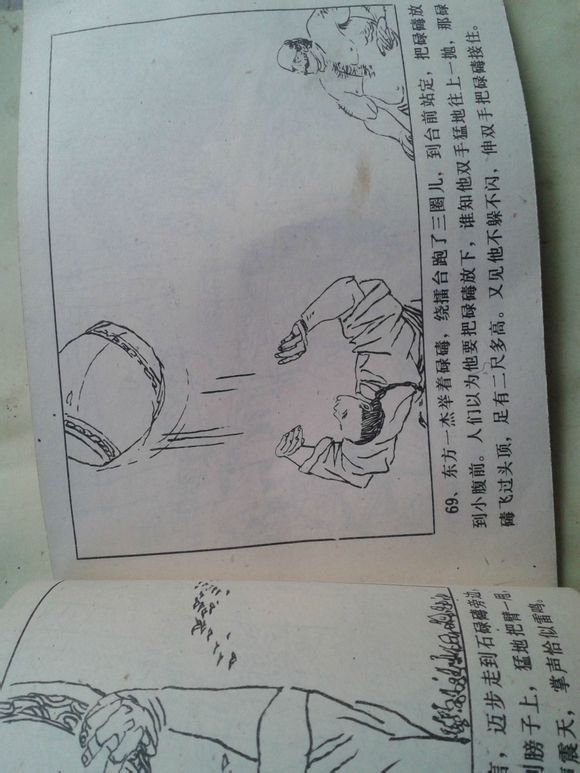 迈步走到石碌碡旁边，
膀子上，猛地把臂一
震天，掌声恰似雷鸣。
69、东方一杰举着碌碡，绕擂台跑了三圈儿，到台前站定，把碌碡放
到小腹前。人们以为他要把碌碡放下，谁知他双手猛地往上一抛，那碌
碡飞过头顶，足有二尺多高。又见他不躲不闪，伸双手把碌碡接住。